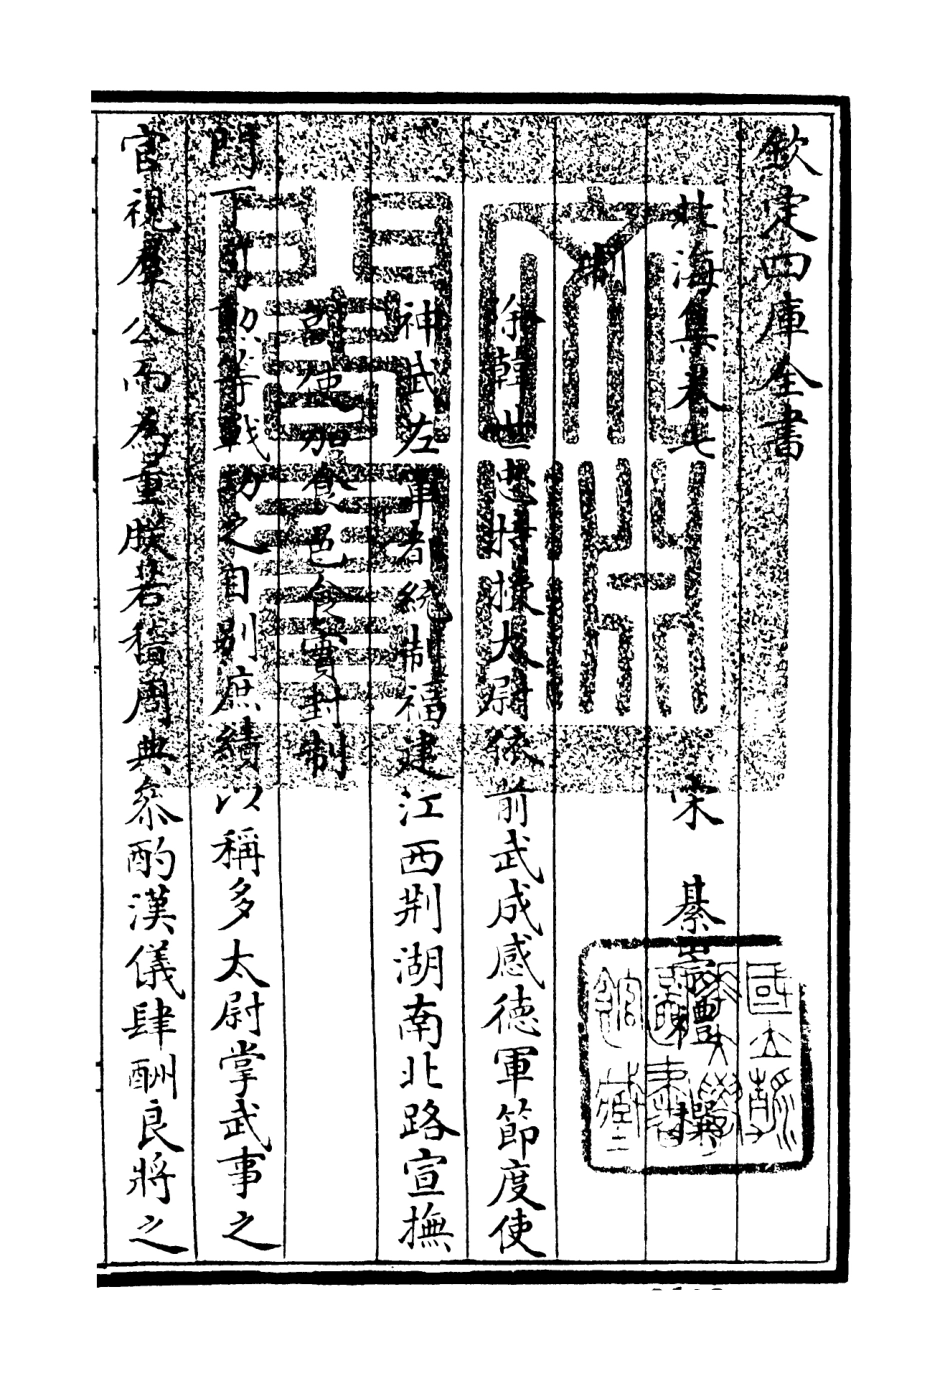 欽定四庫全書
北海集卷七
宋 綦崇禮 撰
制
除韓世忠特授太尉依前武成感德軍節度使
神武左軍都統制福建江西荆湖南北路宣撫
副使加食邑食實封制
門下司勲等戰功之目别庶績以稱多太尉掌武事之
官視羣公而為重朕若稽周典叅酌漢儀肆酬良將之
國立 圖書館藏